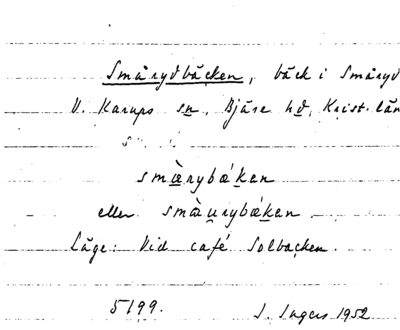 Smårydbäcken, bäck i Småryd
V. Karups sn, Bjäre hd, Krist. län
smæ̀rybǽkan
eller smàu̯rybǽkan
Läge: Vid café Solbacken.
5199.
1952